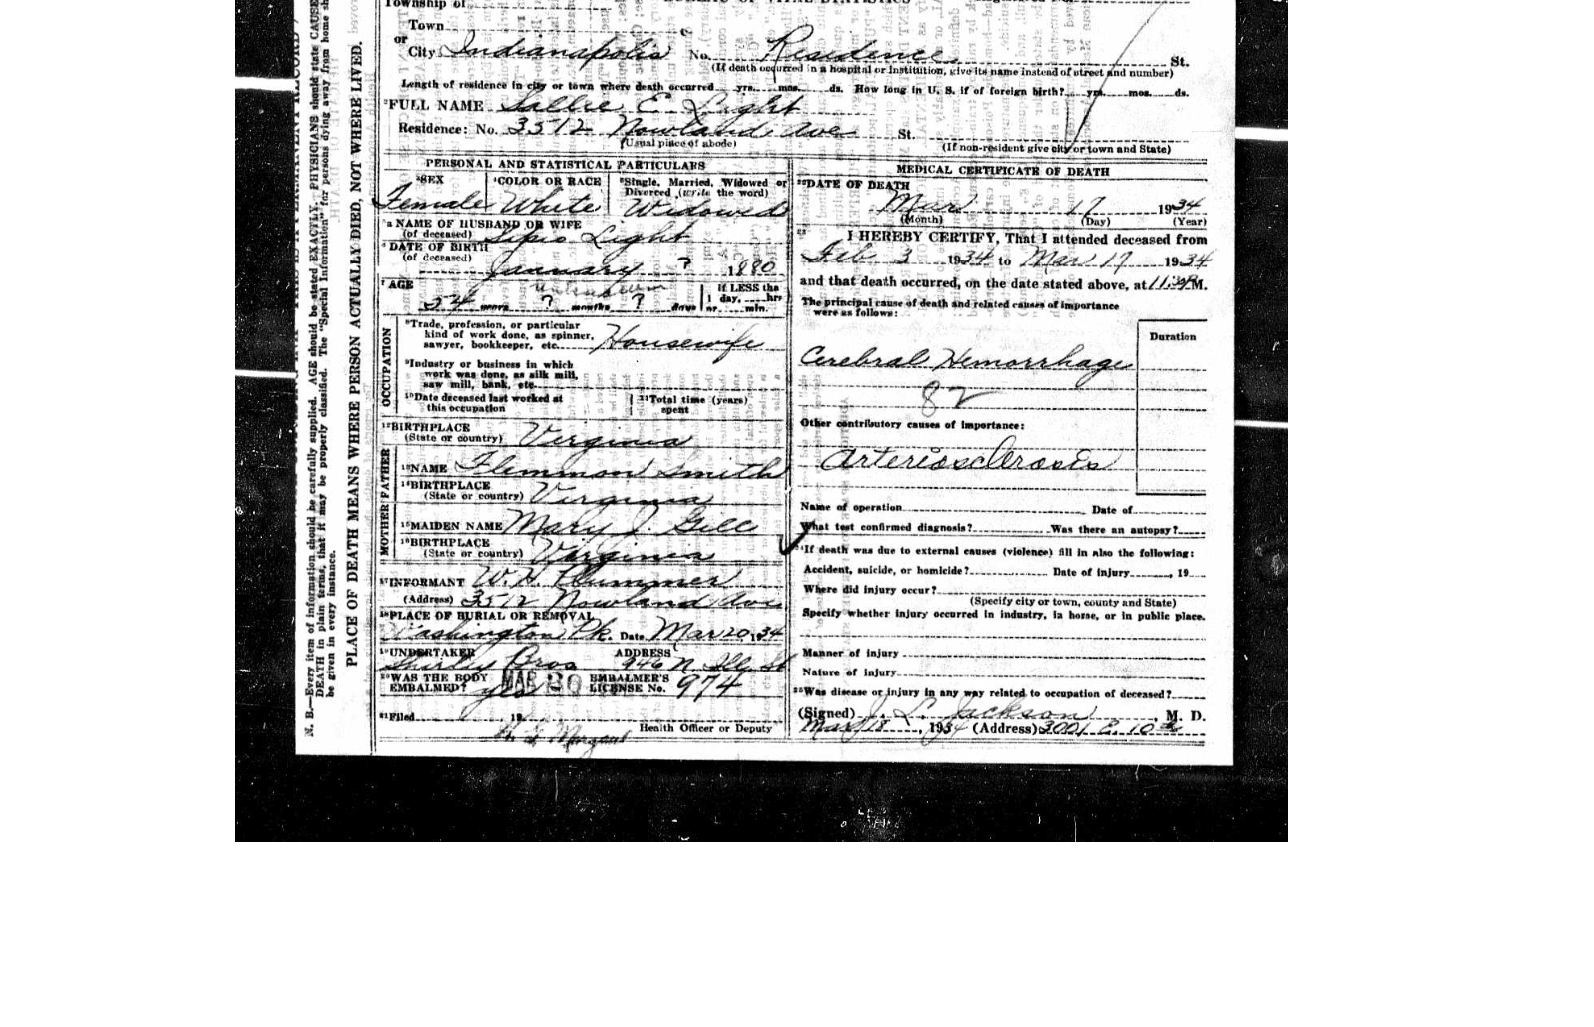 Township of
Town
or
City Indianapolis No. Residence St.
(If death occurred in a hospital or institution, give its name instead of street and number)
Length of residence in city or town where death occurred yrs. mos. ds. How long in U. S. if of foreign birth? yrs. mos. ds.
FULL NAME Sallie E. Light
Residence: No. 3512 Nowland Ave St.
(Usual place of abode) (If non-resident give city or town and State)
PERSONAL AND STATISTICAL PARTICULARS
SEX COLOR OR RACE Single, Married, Widowed or
Divorced (write the word)
Female White Widowed
NAME OF HUSBAND OR WIFE
(of deceased) Light
DATE OF BIRTH
(of deceased)
January ? 1880
AGE If LESS tha
54 years ? months ? days 1 day, hrs
or min.
OCCUPATION
Trade, profession, or particular
kind of work done, as spinner,
sawyer, bookkeeper, etc. Housewife
Industry or business in which
work was done, as silk mill,
saw mill, bank, etc.
Date deceased last worked at Total time (years)
this occupation spent
BIRTHPLACE
(State or country) Virginia
FATHER
NAME Flemmon Smith
BIRTHPLACE
(State or country) Virginia
MOTHER
MAIDEN NAME Mary J. Gill
BIRTHPLACE
(State or country) Virginia
INFORMANT W. H. Plummer
(Address) 3512 Nowland Ave
PLACE OF BURIAL OR REMOVAL
Washington Pk. Date Mar 20, 1934
UNDERTAKER ADDRESS
Shirley Bros 946 N. Ill. St
WAS THE BODY MAR 20 EMBALMER'S
EMBALMED? yes LICENSE No. 974
Filed 19
Health Officer or Deputy
MEDICAL CERTIFICATE OF DEATH
DATE OF DEATH
Mar 17 1934
(Month) (Day) (Year)
I HEREBY CERTIFY, That I attended deceased from
Feb 3 1934 to Mar 17 1934
and that death occurred, on the date stated above, at M.
The principal cause of death and related causes of importance
were as follows:
Duration
Cerebral Hemorrhage
82
Other contributory causes of importance:
Arteriosclerosis
Name of operation Date of
What test confirmed diagnosis? Was there an autopsy?
If death was due to external causes (violence) fill in also the following:
Accident, suicide, or homicide? Date of injury , 19
Where did injury occur?
(Specify city or town, county and State)
Specify whether injury occurred in industry, in home, or in public place.
Manner of injury
Nature of injury
Was disease or injury in any way related to occupation of deceased?
(Signed) J. L. Jackson , M. D.
Mar 18 , 1934 (Address) 3001 E. 10th
PLACE OF DEATH MEANS WHERE PERSON ACTUALLY DIED, NOT WHERE LIVED.
N. B.—Every item of information should be carefully supplied. AGE should be stated EXACTLY. PHYSICIANS should state CAUSE
DEATH in plain terms, that it may be properly classified. The "Special Information" for persons dying away from home sh
be given in every instance.